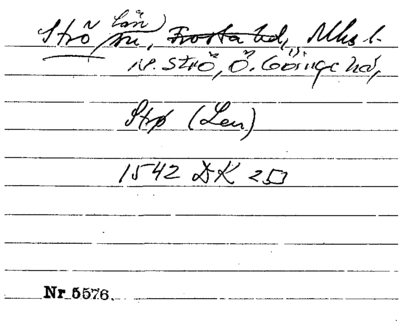 län)
Strö sn, Frosta hd, Mlhs l.
N. Strö, Ö. Göinge hd,
Strø (Len)
1542 DK 253
Nr 5576.